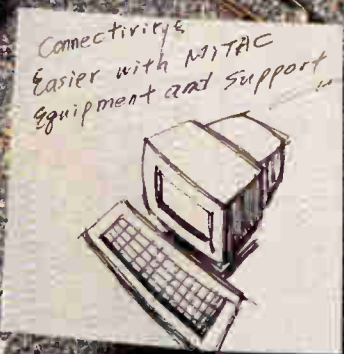 Connectivity is
Easier with MiTAC
Equipment and Support